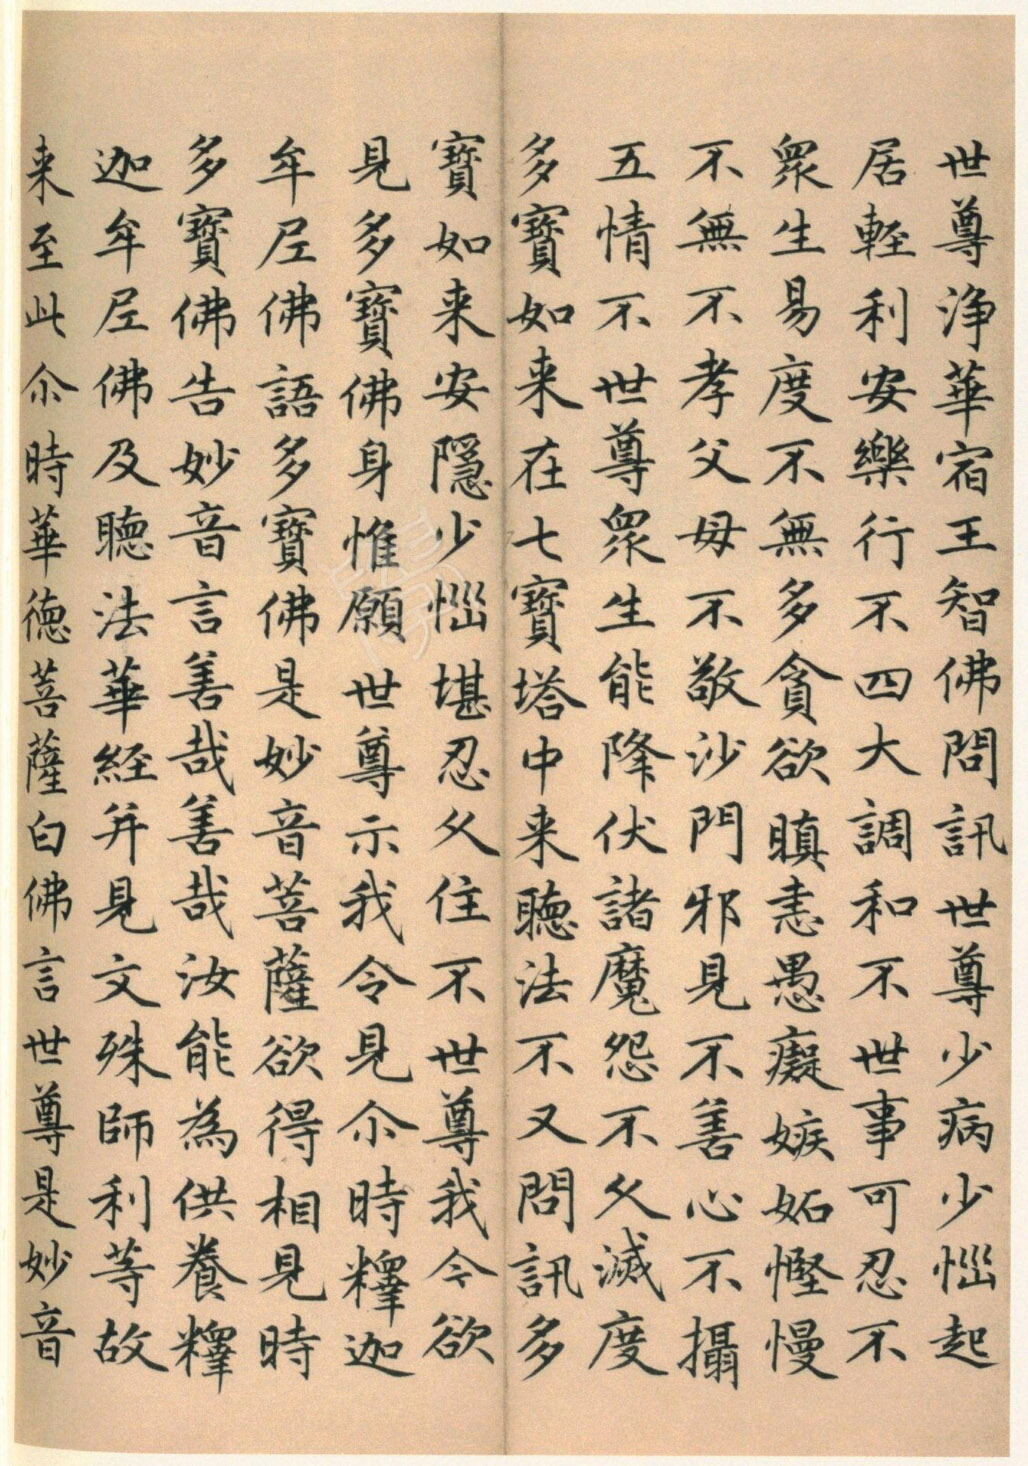 世尊淨華宿王智佛問訊世尊少病少惱起
居輕利安樂行不四大調和不世事可忍不
眾生易度不無多貪欲瞋恚愚癡嫉妬慳慢
不無不孝父母不敬沙門邪見不善心不攝
五情不世尊眾生能降伏諸魔怨不久滅度
多寶如来在七寶塔中来聽法不又問訊多
寶如来安隱少惱堪忍久住不世尊我今欲
見多寶佛身惟願世尊示我令見尒時釋迦
牟尼佛語多寶佛是妙音菩薩欲得相見時
多寶佛告妙音言善哉善哉汝能為供養釋
迦牟尼佛及聽法華經并見文殊師利等故
来至此尒時華德菩薩白佛言世尊是妙音